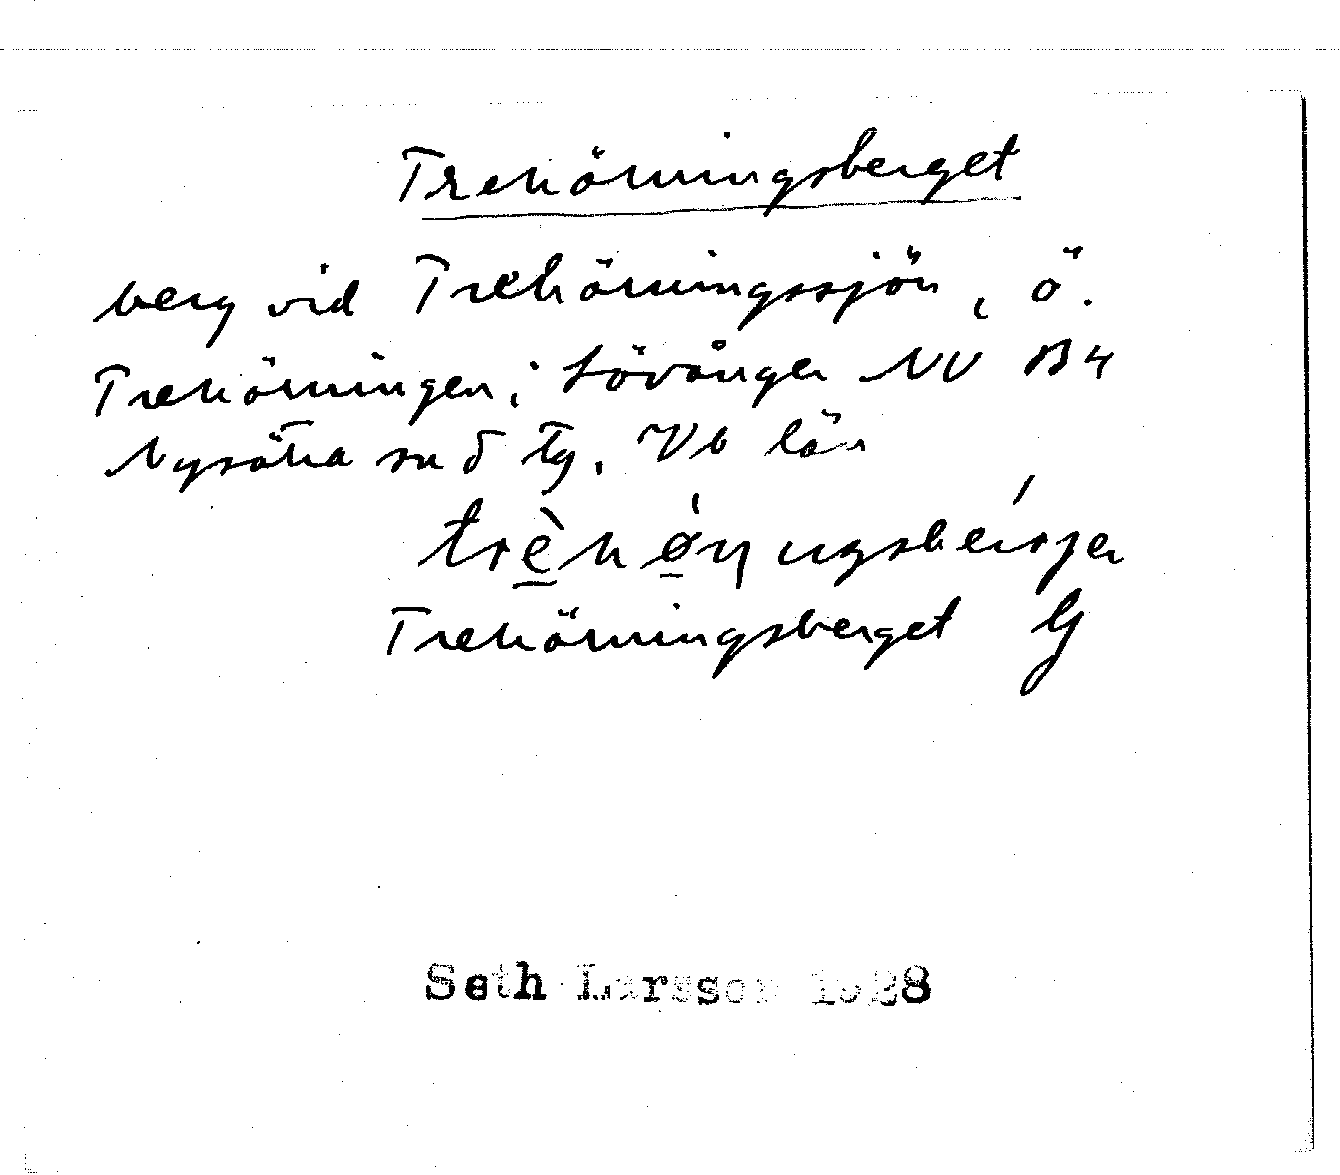 Trehörningsberget
berg vid Trehörningssjön, ö.
Trehörningen; Lövånger NV B4
Nysätra sn Tg. Vb län
Trehörningsberget G
Seth Larsson 1928